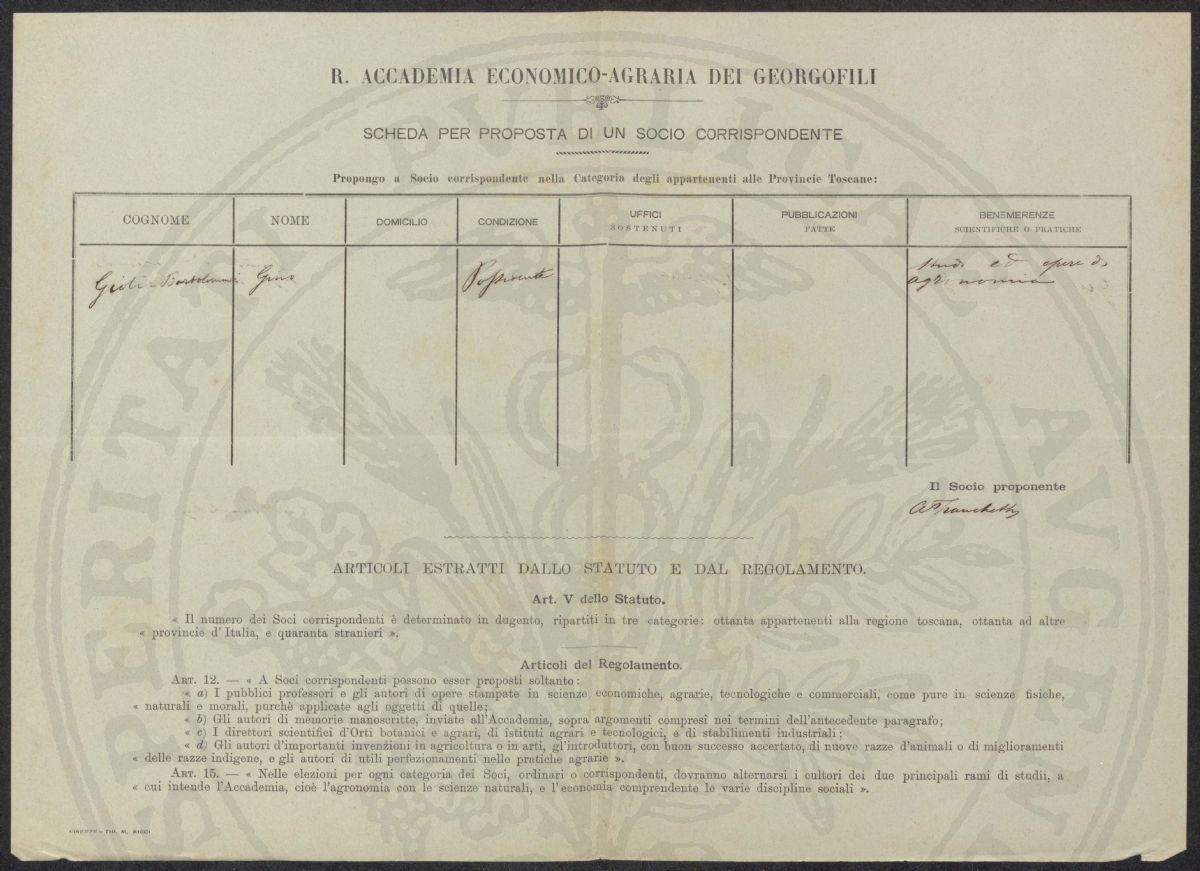 R. ACCADEMIA ECONOMICO-AGRARIA DEI GEORGOFILI
SCHEDA PER PROPOSTA DI UN SOCIO CORRISPONDENTE
Propongo a Socio corrispondente nella Categoria degli appartenenti alle Provincie Toscane:
COGNOME NOME DOMICILIO CONDIZIONE UFFICI SOSTENUTI PUBBLICAZIONI FATTE BENEMERENZE SCIENTIFICHE O PRATICHE
Gioli-Bartolommei Gino Possidente studi ed opere di
agronomia
Il Socio proponente
A Franchetti
ARTICOLI ESTRATTI DALLO STATUTO E DAL REGOLAMENTO.
Art. V dello Statuto.
« Il numero dei Soci corrispondenti è determinato in dugento, ripartiti in tre categorie: ottanta appartenenti alla regione toscana, ottanta ad altre
« provincie d'Italia, e quaranta stranieri ».
Articoli del Regolamento.
ART. 12. — « A Soci corrispondenti possono esser proposti soltanto:
« a) I pubblici professori e gli autori di opere stampate in scienze economiche, agrarie, tecnologiche e commerciali, come pure in scienze fisiche,
« naturali e morali, purchè applicate agli oggetti di quelle;
« b) Gli autori di memorie manoscritte, inviate all'Accademia, sopra argomenti compresi nei termini dell'antecedente paragrafo;
« c) I direttori scientifici d'Orti botanici e agrari, di istituti agrari e tecnologici, e di stabilimenti industriali;
« d) Gli autori d'importanti invenzioni in agricoltura o in arti, gl'introduttori, con buon successo accertato, di nuove razze d'animali o di miglioramenti
« delle razze indigene, e gli autori di utili perfezionamenti nelle pratiche agrarie ».
ART. 15. — « Nelle elezioni per ogni categoria dei Soci, ordinari o corrispondenti, dovranno alternarsi i cultori dei due principali rami di studii, a
« cui intende l'Accademia, cioè l'agronomia con le scienze naturali, e l'economia comprendente le varie discipline sociali ».
FIRENZE - TIP. M. RICCI
PROSPERITATI PUBLICAE AUGENDAE